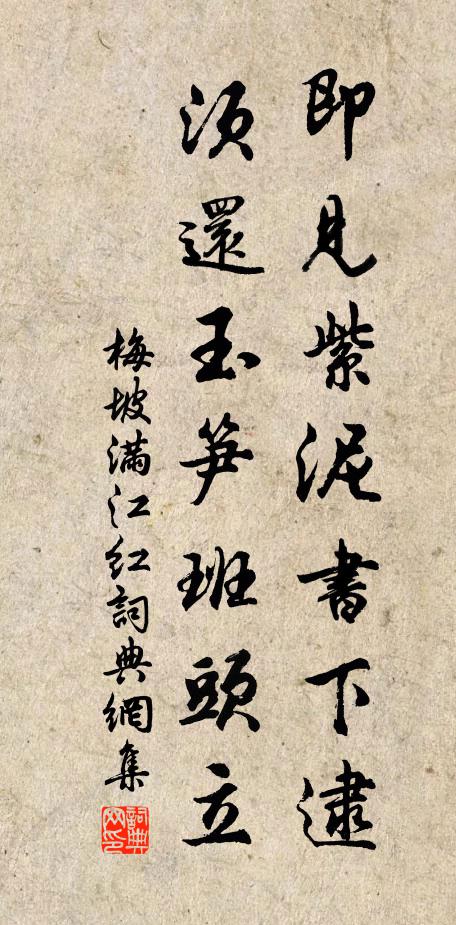 即見紫泥書下逮
須還玉笋班頭立
梅坡滿江紅詞典網集
詞典
网印